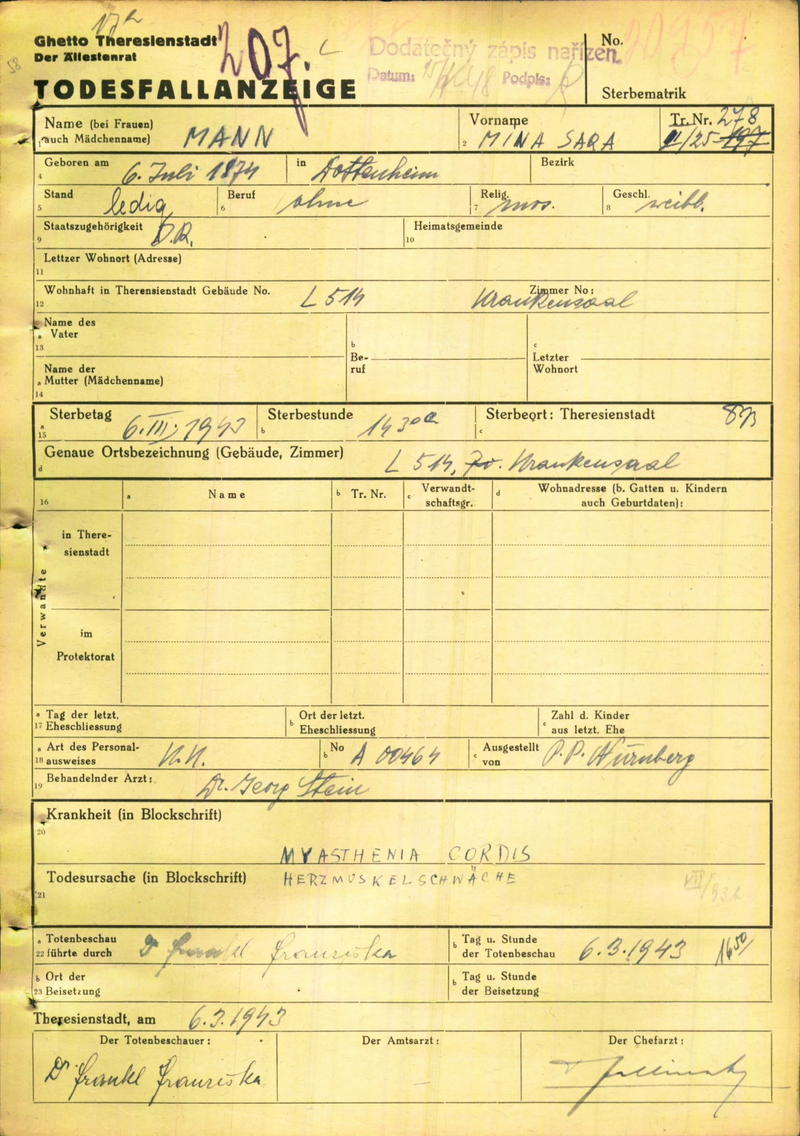 17h
Ghetto Theresienstadt
Der Ältestenrat
207.
Dodátečný zápis nařízen
Datum: Podpis:
No.
TODESFALLANZEIGE
Sterbematrik
58
Name (bei Frauen)
1 auch Mädchenname) MANN
Vorname
2 MINA SARA
Tr. Nr. 278
II/25-197
4 Geboren am 6. Juli 1874 in Dottenheim Bezirk
5 Stand ledig
6 Beruf ohne
7 Relig. mos.
8 Geschl. weibl.
9 Staatszugehörigkeit D.R.
10 Heimatsgemeinde
11 Letzter Wohnort (Adresse)
12 Wohnhaft in Theresienstadt Gebäude No. L 514 Zimmer No: Krankensaal
a 13 Name des Vater
b Beruf
c Letzter Wohnort
a 14 Name der Mutter (Mädchenname)
a 15 Sterbetag 6.III.1943
b Sterbestunde 14 30
c Sterbeort: Theresienstadt
d Genaue Ortsbezeichnung (Gebäude, Zimmer) L 514, Krankensaal
16 a Name
b Tr. Nr.
c Verwandtschaftsgr.
d Wohnadresse (b. Gatten u. Kindern auch Geburtdaten):
Verwandte
in Theresienstadt
im Protektorat
a 17 Tag der letzt. Eheschliessung
b Ort der letzt. Eheschliessung
c Zahl d. Kinder aus letzt. Ehe
a 18 Art des Personalausweises
b No A 00464
c Ausgestellt von P.P. Nürnberg
19 Behandelnder Arzt: Dr. Georg Stein
20 Krankheit (in Blockschrift)
MYASTHENIA CORDIS
21 Todesursache (in Blockschrift) HERZMUSKELSCHWÄCHE
a 22 Totenbeschau führte durch Dr Frankl Franziska
b Tag u. Stunde der Totenbeschau 6.3.1943 16 50
b 23 Ort der Beisetzung
b Tag u. Stunde der Beisetzung
Theresienstadt, am 6.3.1943
Der Totenbeschauer: Der Amtsarzt: Der Chefarzt:
Dr Frankl Franziska